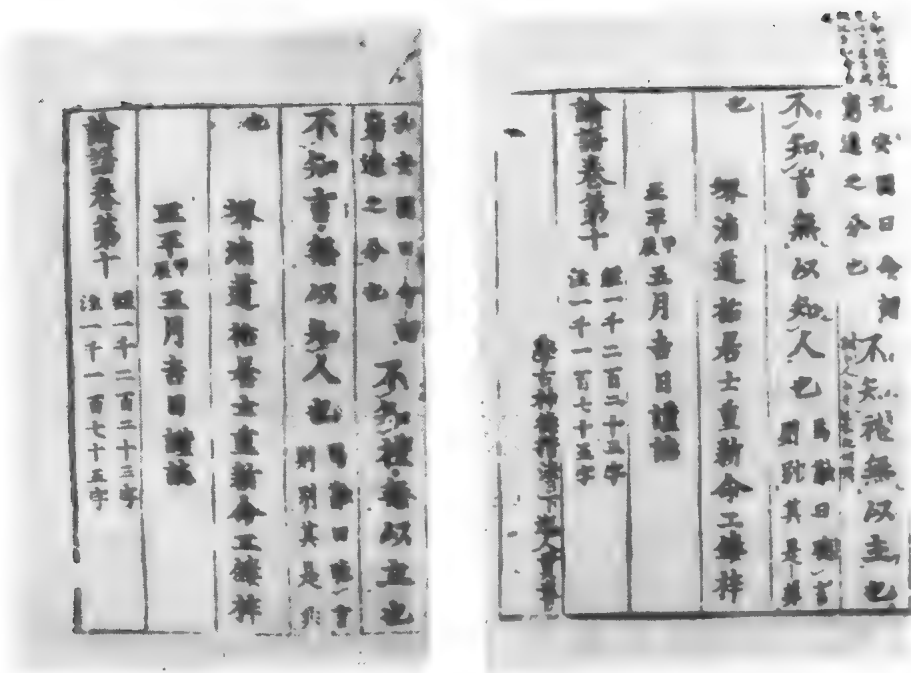 孔安國曰命謂
窮達之分也
不知禮無以立也
不知言無以知人也
馬融曰聽言
則別其是非
也
堺浦道祐居士重新命工鏤梓
正平甲辰五月吉日謹誌
論語卷第十
經一千二百二十三字
注一千一百七十五字
學古神德楷法下逸人貫書
孔安國曰命謂
窮達之分也
不知禮無以立也
不知言無以知人也
馬融曰聽言
則別其是非
也
堺浦道祐居士重新命工鏤梓
正平甲辰五月吉日謹誌
論語卷第十
經一千二百二十三字
注一千一百七十五字